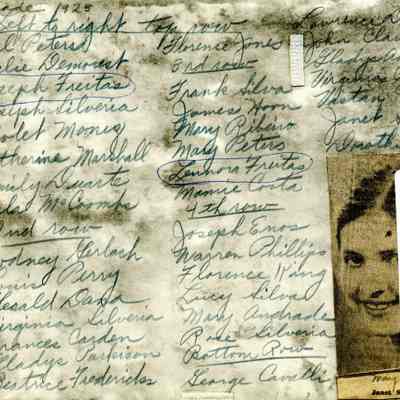 ade 1925
Left to right top row
Peters
Demorest
seph Freitas
Silveria
olet Moniz
therine Marshall
mily Duarte
McCombs
2nd row
odney Gerlach
Perry
erald Dana
irginia Silveria
rances Carden
ladys Parkerson
ertrice Fredericks
Florence Jones
3rd row
Frank Silva
James Hoon
Mary Ribeiro
Mary Peters
Lennora Freitas
Mamie Costa
4th row
Joseph Enos
Warren Phillips
Florence King
Lucy Silva
Mary Andrade
Rose Silveria
Bottom Row
George Cavalli
Lawrence
John Cla
Gladys A
Virginia
Janet
Dorothy